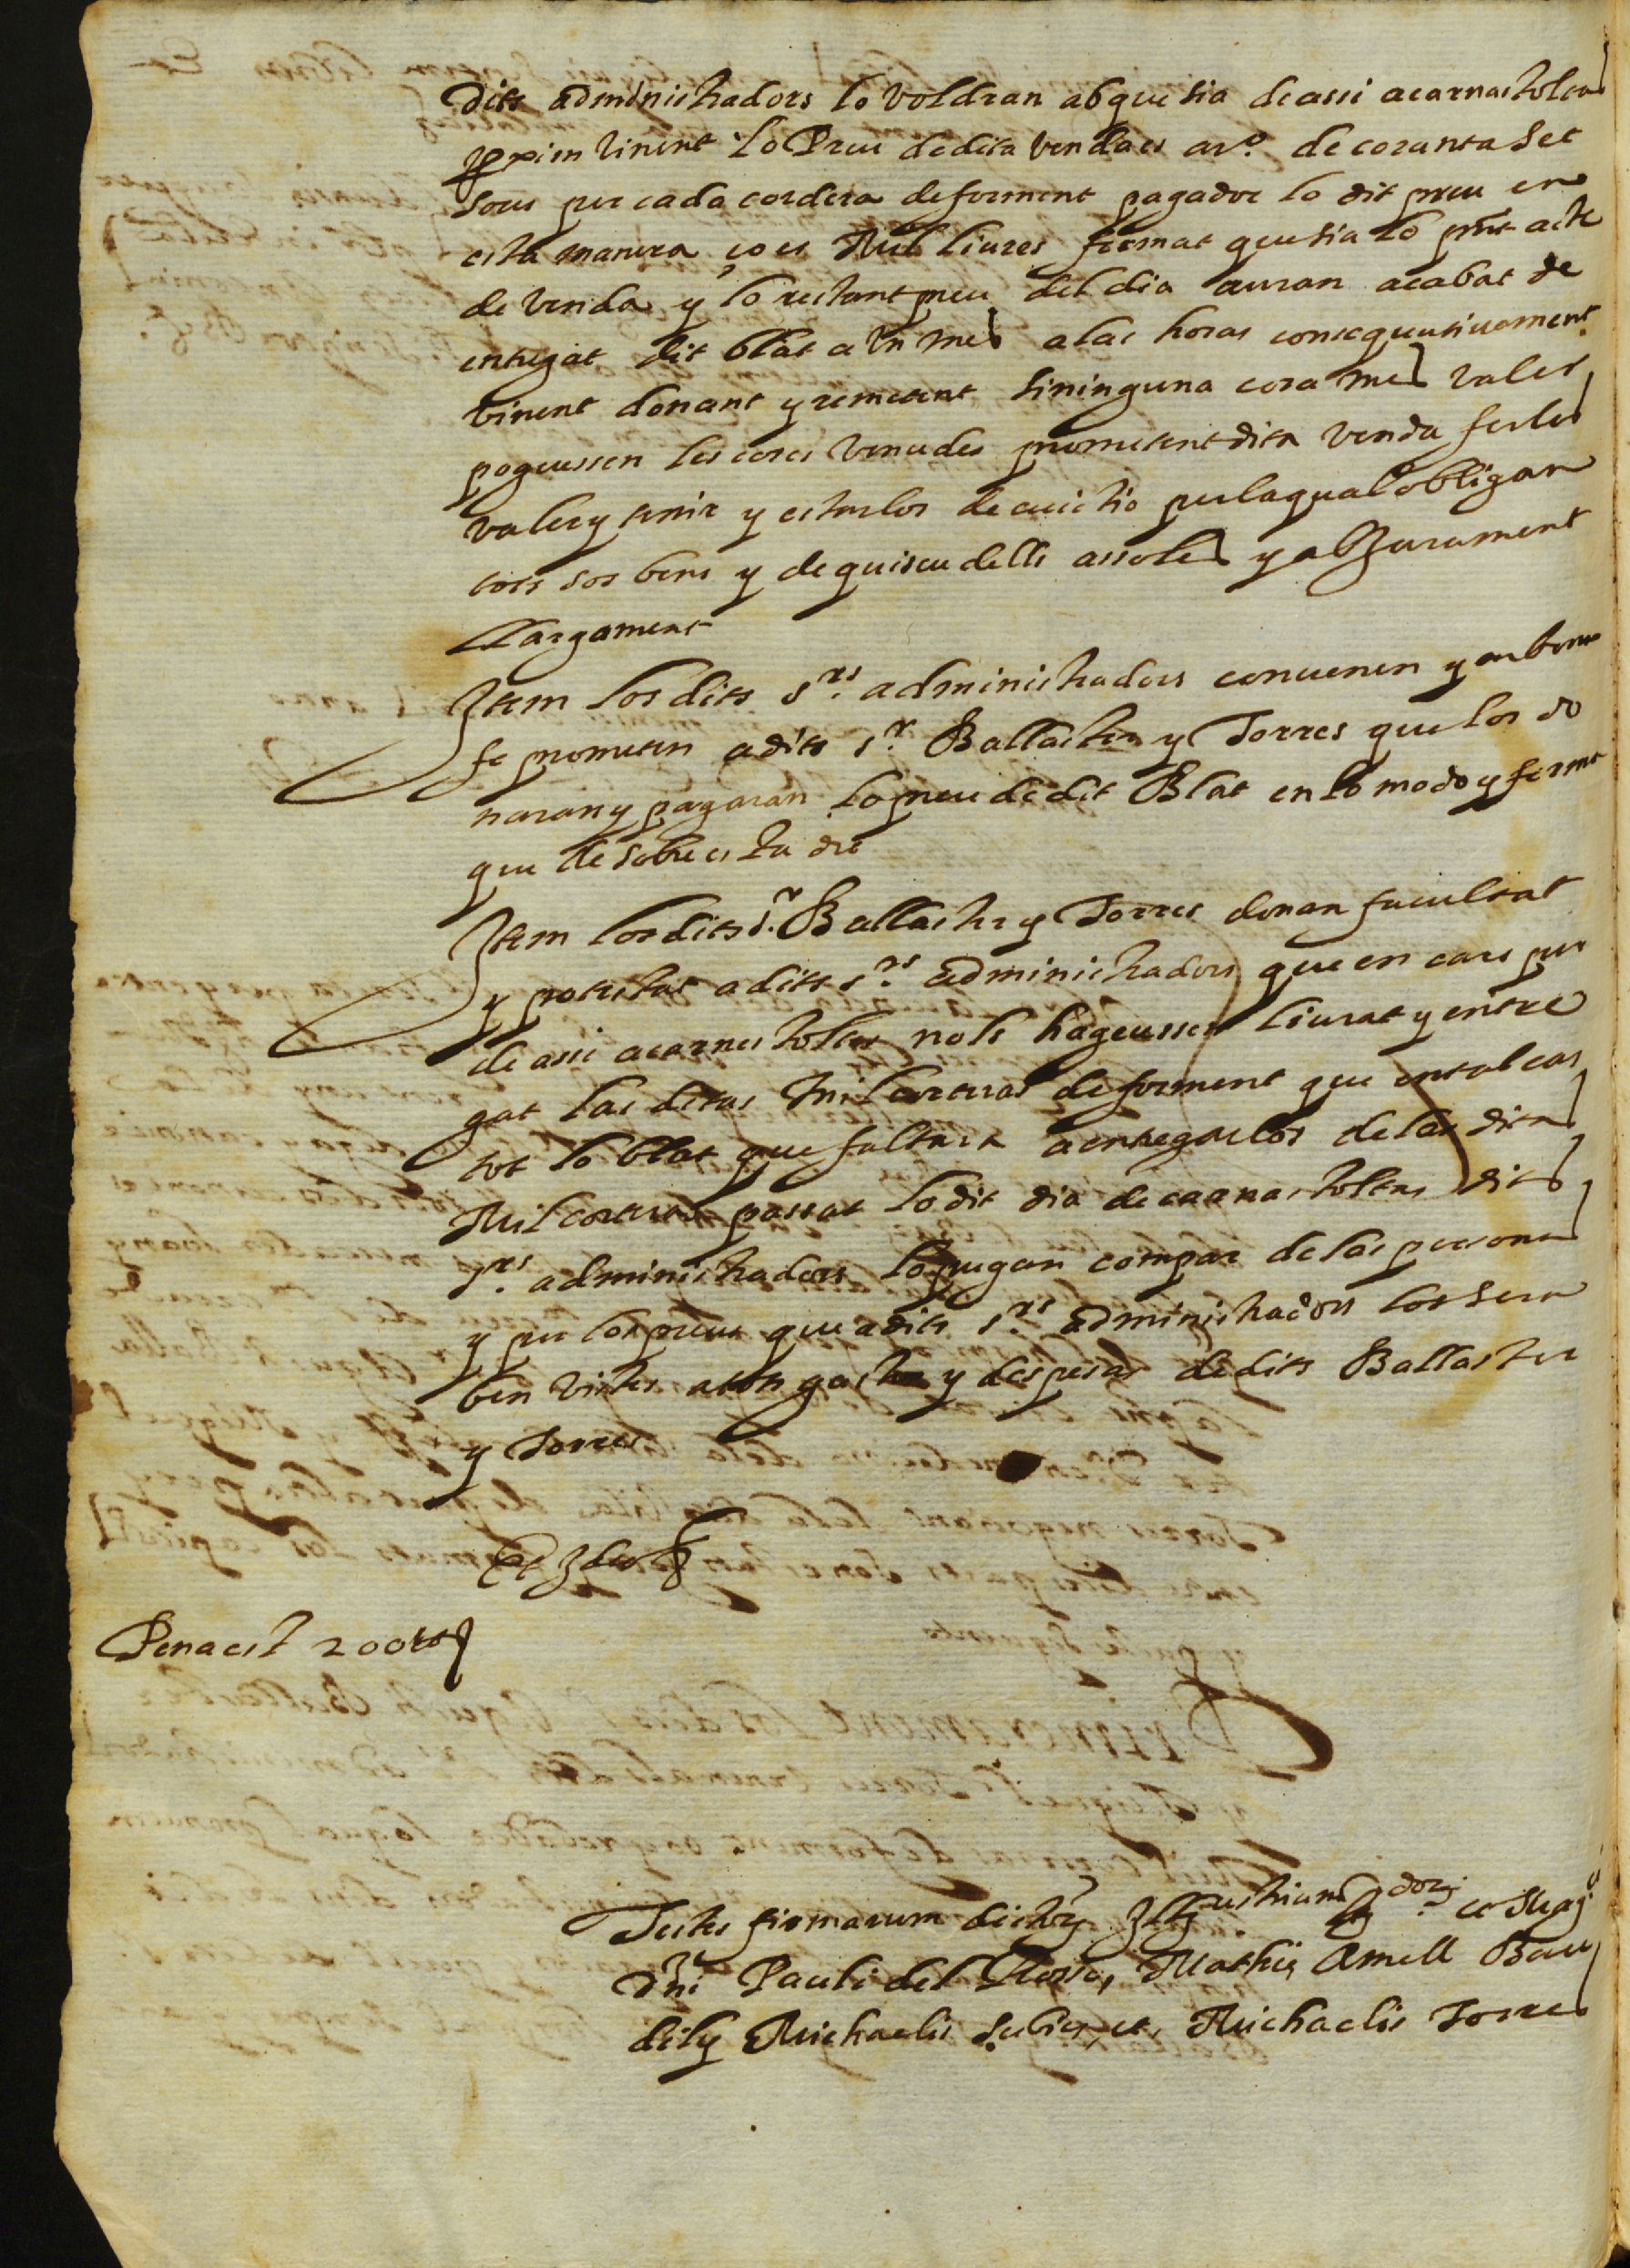 dits administradors lo voldran ab que sia de assi a carnastoltas
ppxim vinent lo Preu de dita venda es a rº. de coranta set
sous per cada cortera de forment pagador lo dit preu en
esta manera ço es Mil liures firmat que sia lo pnt acte
de venda y lo restant preu del dia auran acabat de
entregat dit blat a un mes a las horas consequutivament
vinent donant y remetent si ninguna cosa mes valer
poguessen les coses venudes prometent dita venda ferlos
valer y tenir y estarlos de euictio per la qual obligan
tots sos bens y de quiscu dells assoles y ab Jurament
Llargament
Item los dits srs. administradors conuenen y en bona
fe prometen a dits sr. Ballaster y Torres que los do
naran y pagaran lo preu de dit Blat en lo modo y forma
que de sobre esta dit
Item los dits sr. Ballaster y Torres donan facultat
y potestat a dits srs. administradors que en cars per
de assi a carnestoltas nols haguessen liurat y entre
gat las ditas Mil corteras de forment que en tal cas
tot lo blat que faltara a entregarlos de las ditas
Mil corteras passat lo dit dia de carnastoltas dits
srs. administradors lo pugan compar de las personas
y per los preus que a dits srs. administradors los sera
ben vistes a tots gastos y despesas de dits Ballaster
y Torres
Penaest 200
Testes firmarum dictor et Magci
Dni Pauli del Rosso, Mathie Amell Bau
dily Michaelis et Michaelis Torres